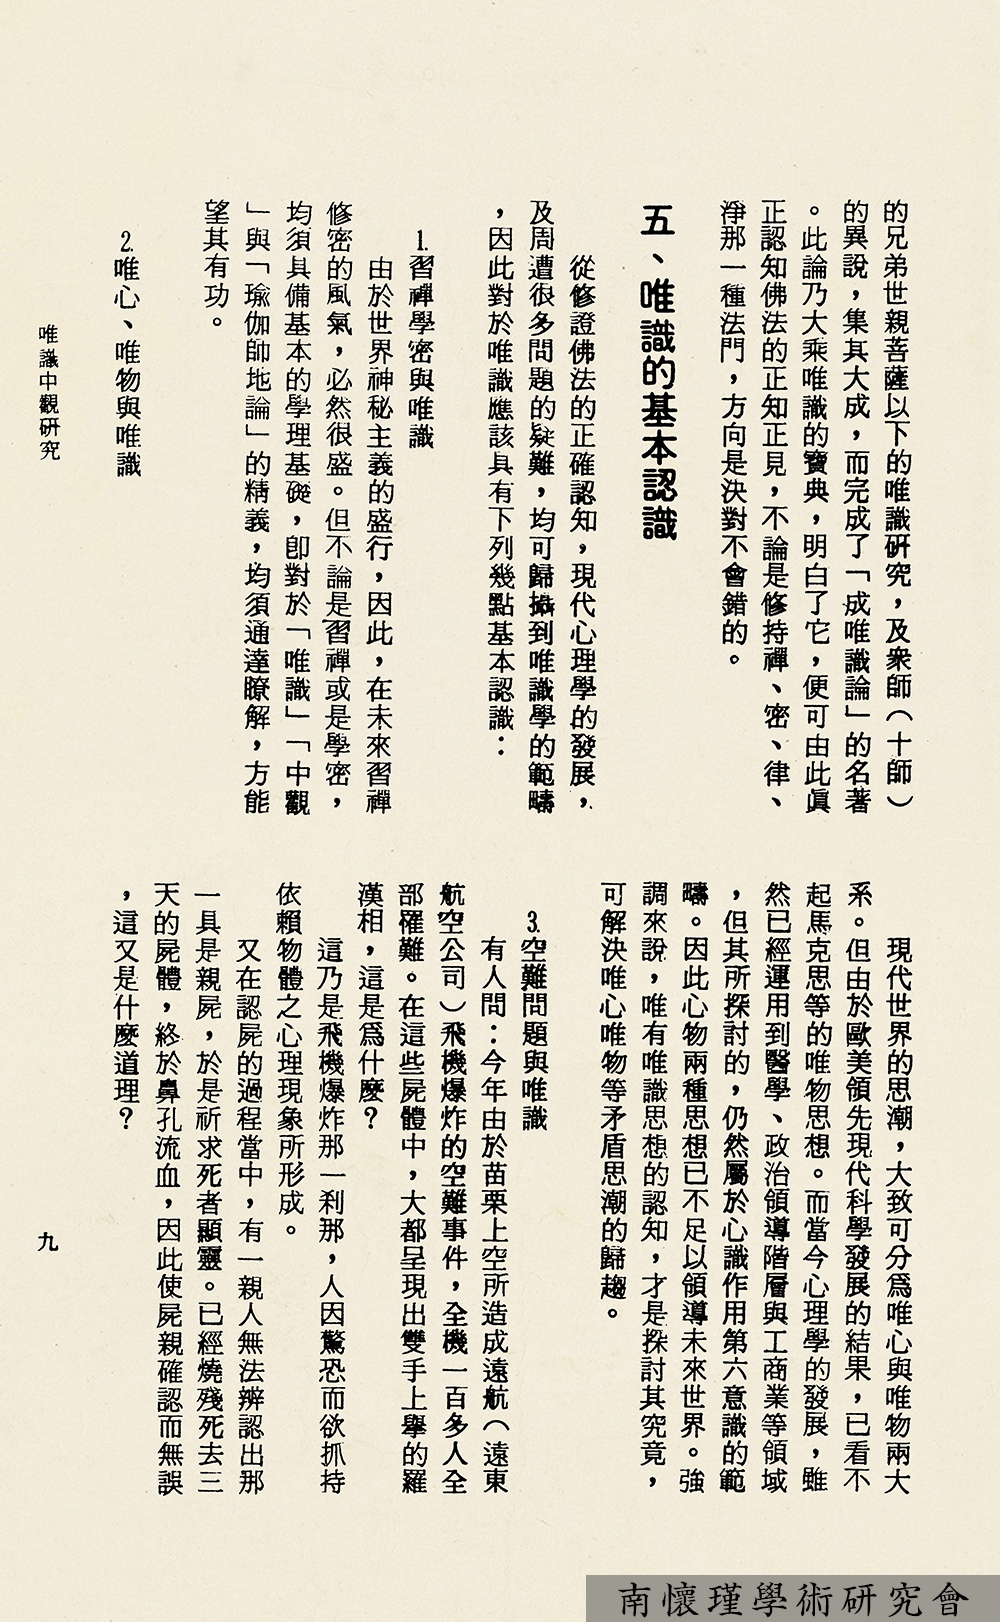 的兄弟世親菩薩以下的唯識研究，及衆師（十師）
的異說，集其大成，而完成了「成唯識論」的名著
。此論乃大乘唯識的寶典，明白了它，便可由此眞
正認知佛法的正知正見，不論是修持禪、密、律、
淨那一種法門，方向是決對不會錯的。
五、唯識的基本認識
從修證佛法的正確認知，現代心理學的發展，
及周遭很多問題的疑難，均可歸攝到唯識學的範疇
，因此對於唯識應該具有下列幾點基本認識：
1.習禪學密與唯識
由於世界神秘主義的盛行，因此，在未來習禪
修密的風氣，必然很盛。但不論是習禪或是學密，
均須具備基本的學理基礎，卽對於「唯識」「中觀
」與「瑜伽師地論」的精義，均須通達瞭解，方能
望其有功。
2.唯心、唯物與唯識
現代世界的思潮，大致可分爲唯心與唯物兩大
系。但由於歐美領先現代科學發展的結果，已看不
起馬克思等的唯物思想。而當今心理學的發展，雖
然已經運用到醫學、政治領導階層與工商業等領域
，但其所探討的，仍然屬於心識作用第六意識的範
疇。因此心物兩種思想已不足以領導未來世界。強
調來說，唯有唯識思想的認知，才是探討其究竟，
可解決唯心唯物等矛盾思潮的歸趨。
3.空難問題與唯識
有人問：今年由於苗栗上空所造成遠航（遠東
航空公司）飛機爆炸的空難事件，全機一百多人全
部罹難。在這些屍體中，大都呈現出雙手上舉的羅
漢相，這是爲什麼？
這乃是飛機爆炸那一剎那，人因驚恐而欲抓持
依賴物體之心理現象所形成。
又在認屍的過程當中，有一親人無法辨認出那
一具是親屍，於是祈求死者顯靈。已經燒殘死去三
天的屍體，終於鼻孔流血，因此使屍親確認而無誤
，這又是什麼道理？
唯識中觀研究
九
南懷瑾學術研究會